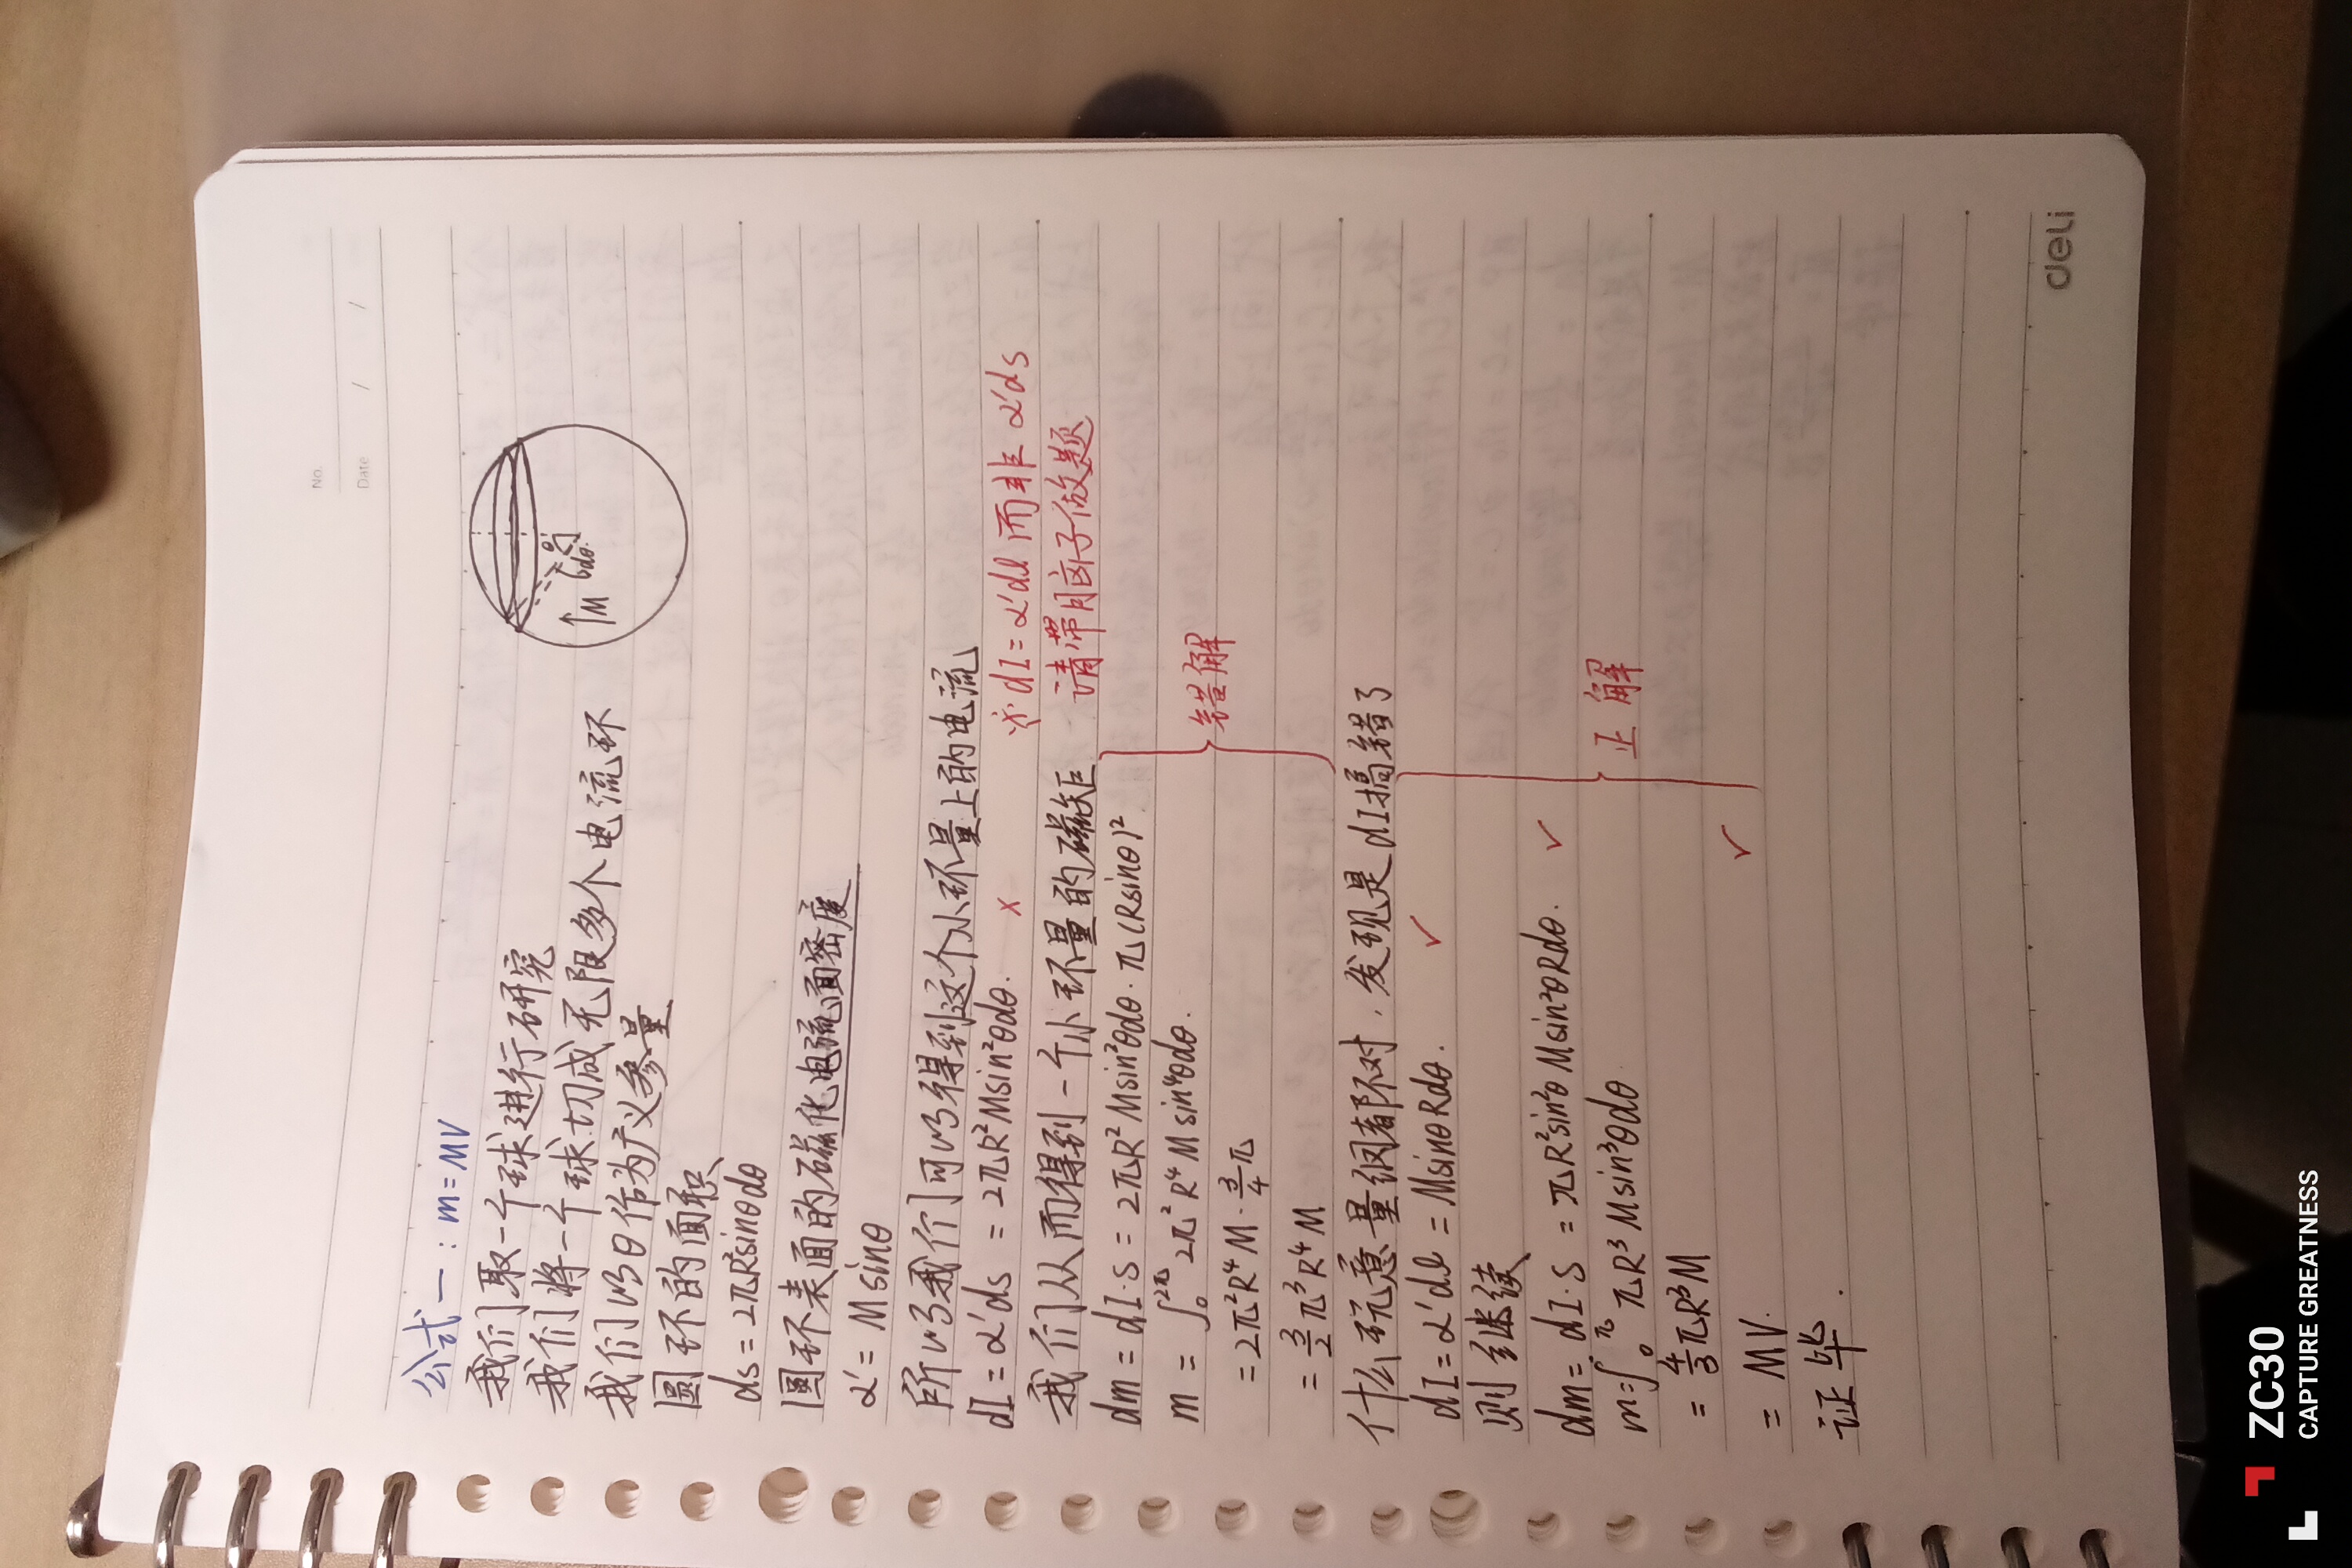 No.
Date / /
公式一: m=MV
我们取一个球进行研究
我们将一个球切成无限多个电流环
我们以θ作为广义参量
圆环的面积
ds=2πR²sinθdθ
圆环表面的磁化电流面密度
α'=Msinθ
所以我们可以得到这个小环量上的电流
dI=α'ds=2πR²Msin²θdθ. ×
※dI=α'dl而非α'ds
我们从而得到一个小环量的磁矩
请带脑子做题
dm=dI·S=2πR²Msin²θdθ·π(Rsinθ)²
m=∫₀²ᵖⁱ 2π²R⁴Msin⁴θdθ.
=2π²R⁴M·3/4π
=3/2π³R⁴M
错解
什么玩意量纲都不对,发现是dI搞错了
dI=α'dl=MsinθRdθ. ✓
则继续
dm=dI·S=πR²sin²θMsin²θRdθ. ✓
m=∫₀^π πR³Msin³θdθ
=4/3πR³M
=MV. ✓
正解
证毕.
M
θ
dθ.
deli
ZC30
CAPTURE GREATNESS